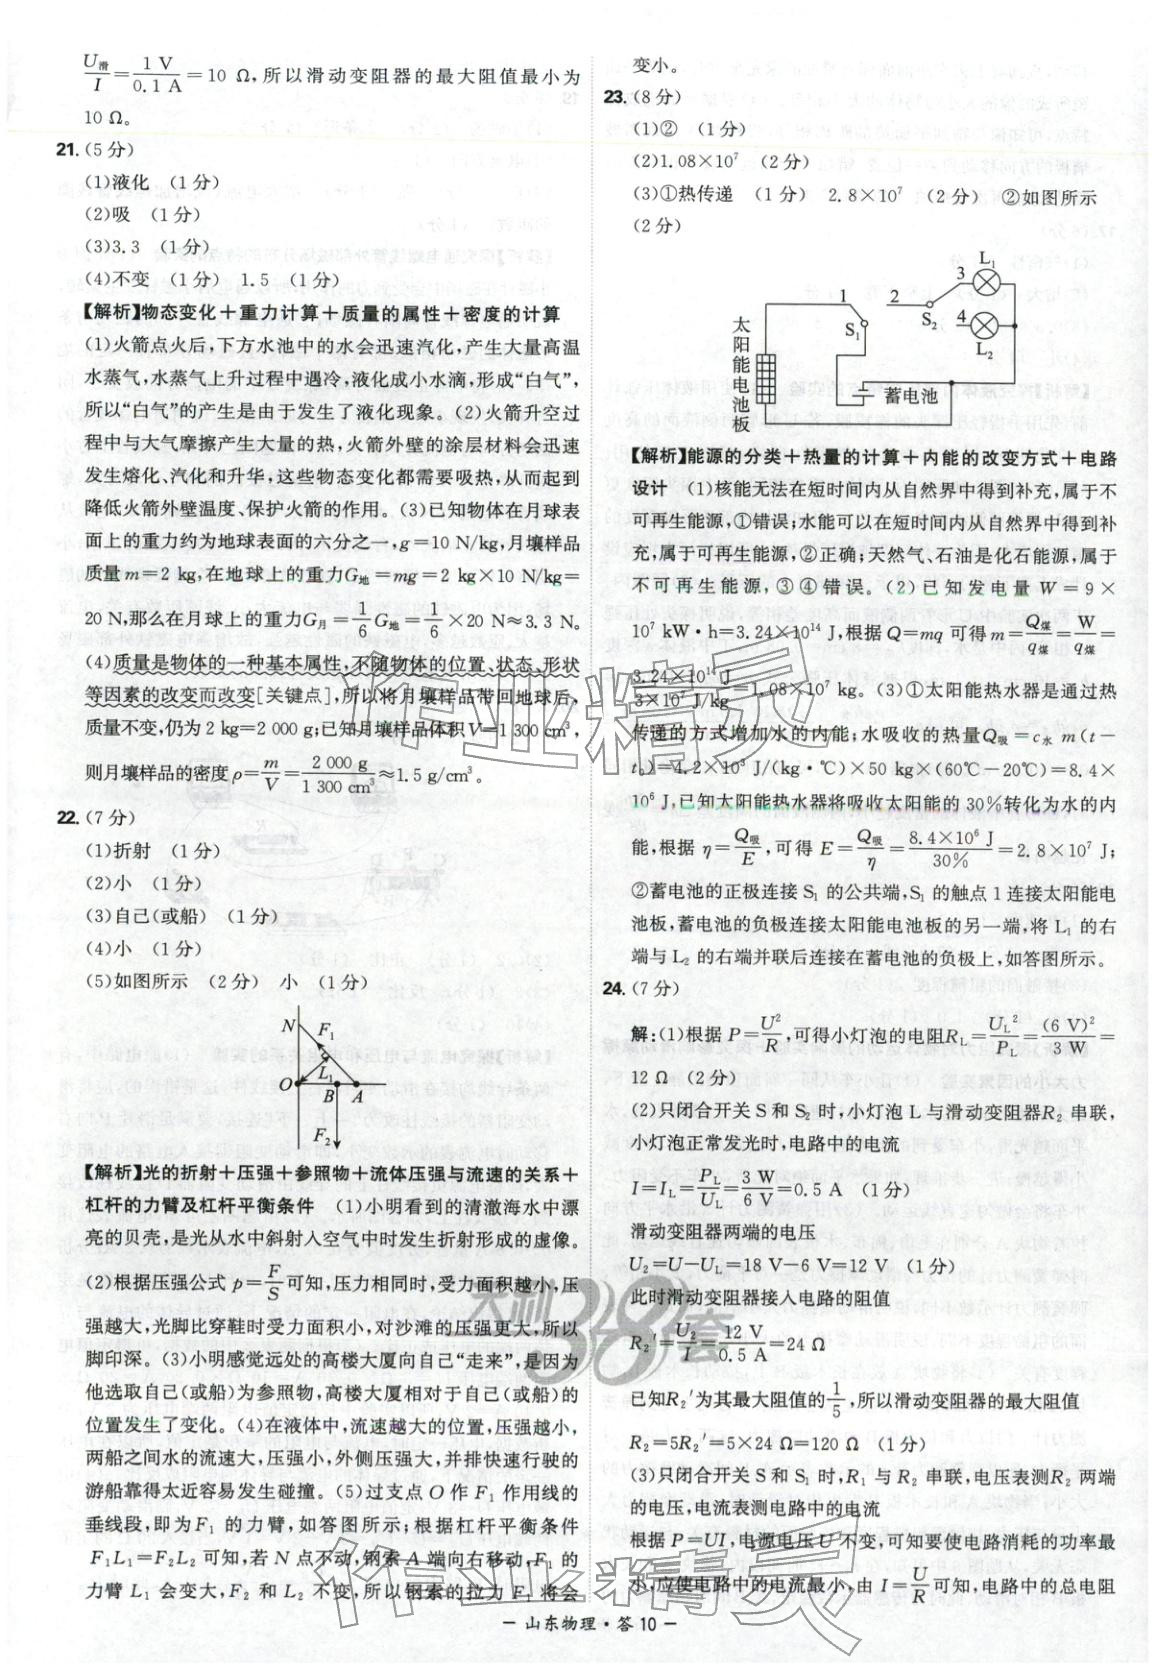 U滑/I=1 V/0.1 A=10 Ω,所以滑动变阻器的最大阻值最小为
10 Ω。
21.(5分)
(1)液化 (1分)
(2)吸 (1分)
(3)3.3 (1分)
(4)不变 (1分) 1.5 (1分)
【解析】物态变化+重力计算+质量的属性+密度的计算
(1)火箭点火后,下方水池中的水会迅速汽化,产生大量高温
水蒸气,水蒸气上升过程中遇冷,液化成小水滴,形成“白气”,
所以“白气”的产生是由于发生了液化现象。(2)火箭升空过
程中与大气摩擦产生大量的热,火箭外壁的涂层材料会迅速
发生熔化、汽化和升华,这些物态变化都需要吸热,从而起到
降低火箭外壁温度、保护火箭的作用。(3)已知物体在月球表
面上的重力约为地球表面的六分之一,g=10 N/kg,月壤样品
质量m=2 kg,在地球上的重力G地=mg=2 kg×10 N/kg=
20 N,那么在月球上的重力G月=1/6 G地=1/6×20 N≈3.3 N。
(4)质量是物体的一种基本属性,不随物体的位置、状态、形状
等因素的改变而改变[关键点],所以将月壤样品带回地球后,
质量不变,仍为2 kg=2 000 g;已知月壤样品体积V=1 300 cm³,
则月壤样品的密度ρ=m/V=2 000 g/1 300 cm³≈1.5 g/cm³。
22.(7分)
(1)折射 (1分)
(2)小 (1分)
(3)自己(或船) (1分)
(4)小 (1分)
(5)如图所示 (2分) 小 (1分)
N
F₁
L₁
O
B
A
F₂
【解析】光的折射+压强+参照物+流体压强与流速的关系+
杠杆的力臂及杠杆平衡条件 (1)小明看到的清澈海水中漂
亮的贝壳,是光从水中斜射入空气中时发生折射形成的虚像。
(2)根据压强公式p=F/S可知,压力相同时,受力面积越小,压
强越大,光脚比穿鞋时受力面积小,对沙滩的压强更大,所以
脚印深。(3)小明感觉远处的高楼大厦向自己“走来”,是因为
他选取自己(或船)为参照物,高楼大厦相对于自己(或船)的
位置发生了变化。(4)在液体中,流速越大的位置,压强越小,
两船之间水的流速大,压强小,外侧压强大,并排快速行驶的
游船靠得太近容易发生碰撞。(5)过支点O作F₁作用线的
垂线段,即为F₁的力臂,如答图所示;根据杠杆平衡条件
F₁L₁=F₂L₂可知,若N点不动,钢索A端向右移动,F₁的
力臂L₁会变大,F₂和L₂不变,所以钢索的拉力F₁将会
变小。
23.(8分)
(1)② (1分)
(2)1.08×10⁷ (2分)
(3)①热传递 (1分) 2.8×10⁷ (2分) ②如图所示
(2分)
L₁
3
1
2
S₁
S₂
4
L₂
太阳能电池板
蓄电池
【解析】能源的分类+热量的计算+内能的改变方式+电路
设计 (1)核能无法在短时间内从自然界中得到补充,属于不
可再生能源,①错误;水能可以在短时间内从自然界中得到补
充,属于可再生能源,②正确;天然气、石油是化石能源,属于
不可再生能源,③④错误。(2)已知发电量W=9×
10⁷ kW·h=3.24×10¹⁴ J,根据Q=mq可得m=Q煤/q煤=W/q煤=
3.24×10¹⁴ J/3×10⁷ J/kg=1.08×10⁷ kg。(3)①太阳能热水器是通过热
传递的方式增加水的内能;水吸收的热量Q吸=c水m(t-
t₀)=4.2×10³ J/(kg·℃)×50 kg×(60℃-20℃)=8.4×
10⁶ J,已知太阳能热水器将吸收太阳能的30%转化为水的内
能,根据η=Q吸/E,可得E=Q吸/η=8.4×10⁶ J/30%=2.8×10⁷ J;
②蓄电池的正极连接S₁的公共端,S₁的触点1连接太阳能电
池板,蓄电池的负极连接太阳能电池板的另一端,将L₁的右
端与L₂的右端并联后连接在蓄电池的负极上,如答图所示。
24.(7分)
解:(1)根据P=U²/R,可得小灯泡的电阻R_L=U_L²/P_L=(6 V)²/3 W=
12 Ω (2分)
(2)只闭合开关S和S₂时,小灯泡L与滑动变阻器R₂串联,
小灯泡正常发光时,电路中的电流
I=I_L=P_L/U_L=3 W/6 V=0.5 A (1分)
滑动变阻器两端的电压
U₂=U-U_L=18 V-6 V=12 V (1分)
此时滑动变阻器接入电路的阻值
R₂′=U₂/I=12 V/0.5 A=24 Ω
已知R₂′为其最大阻值的1/5,所以滑动变阻器的最大阻值
R₂=5R₂′=5×24 Ω=120 Ω (1分)
(3)只闭合开关S和S₁时,R₁与R₂串联,电压表测R₂两端
的电压,电流表测电路中的电流
根据P=UI,电源电压U不变,可知要使电路消耗的功率最
小,应使电路中的电流最小,由I=U/R可知,电路中的总电阻
天利38套
作业精灵
作业精灵
— 山东物理·答10 —